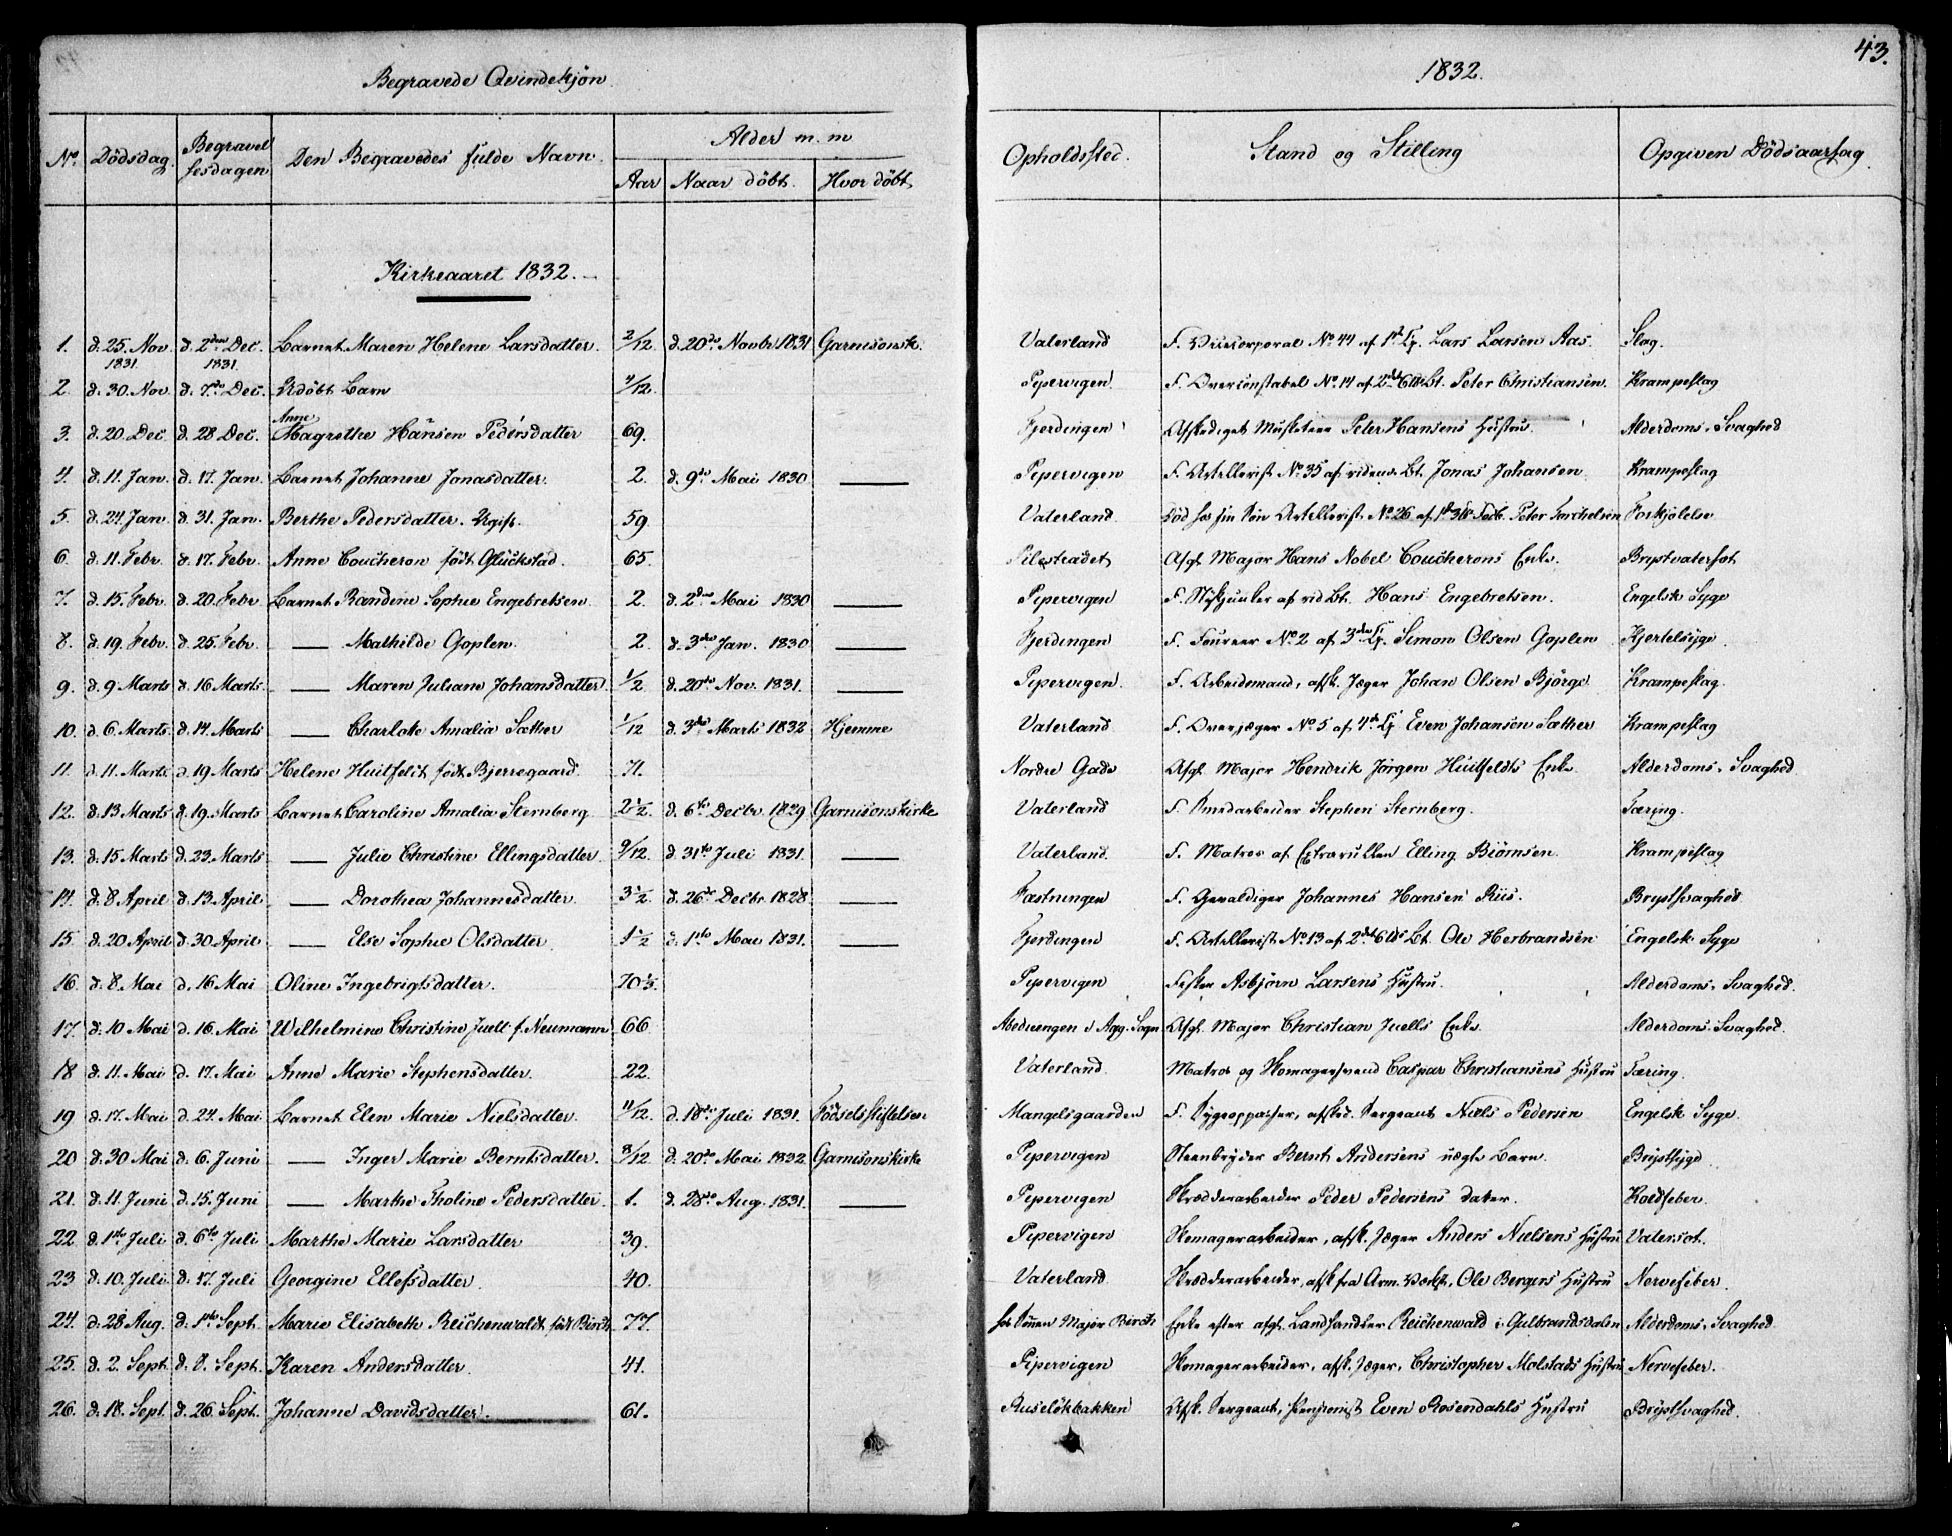 43.
Begravede Qvindekjön
1832.
Nº. Dödsdag. Begravelsesdagen Den Begravedes fulde Navn. Alder m. m Opholdssted. Stand og Stilling Opgiven Dödsaarsag.
Aar Naar döbt. Hvor döbt
Kirkeaaret 1832.
1. d. 25. Nov. 1831. d. 2den Dec. 1831. Barnet Maren Helene Larsdatter. 2/12 d. 20de Novbr 1831 Garnisonsk. Vaterland F. Vicecorporal Nº 44 af 1st Cp. Lars Larsen Aas. Slag.
2. d. 30. Nov. d. 7de Dec. Udöbt Barn /12. Pipervigen F. Overconstabel Nº. 14 af 2det 6℔s Bt. Peter Christiansen. Krampeslag
3. d. 20. Dec. d. 28 Dec. Anne Magrethe Hansen Pedersdatter 69. Fjerdingen Afskediget Musketeer Peter Hansens Hustru. Alderdoms-Svaghed
4. d. 11. Jan. d. 17. Jan. Barnet Johanne Jonasdatter. 2. d. 9de Mai 1830 — Pipervigen F. Artillerist Nº 35 af ridende Bt. Jonas Johansen Krampeslag
5. d. 24. Jan d. 31. Jan. Berthe Pedersdatter. Ugift. 59. Vaterland. Död hos sin Sön Artillerist Nº 26 af 1st 3℔s Peter Torchelsen Forkjölelse
6. d. 11. Febr. d. 17. Febr. Anne Coucheron födt Glückstad. 65. Pilestrædet Afgl. Major Hans Nobel Coucherons Enke. Brystvatersot
7. d. 15. Febr. d. 20. Febr Barnet Randine Sophie Engebretsen 2. d. 2den Mai 1830 — Pipervigen F. Stykjunker af rid. Bt. Hans Engebretsen. Engelsk Syge
8. d. 19. Febr. d. 25. Febr. — Mathilde Goplen. 2. d. 3die Jan. 1830 — Fjerdingen F. Foureer Nº 2 af 3die Cp. Simon Olsen Goplen Kjertelsyge
9. d. 9 Marts d. 16 Marts — Maren Juliane Johansdatter. 1/2 d. 20de Nov. 1831. — Pipervigen. F. Arbeidsmand, afsk. Jæger Johan Olsen Björge Krampeslag.
10. d. 6. Marts. d. 14. Marts — Charlotte Amalia Sæther 1/12 d. 3die Marts 1832 Hjemme Vaterland F. Overjæger Nº 5 af 4de Cp Even Johansen Sæther Krampeslag
11. d. 11. Marts d. 19 Marts Helene Huitfeldt födt Bjerregaard. 71. Nordre Gade Afgl. Major Hendrik Jörgen Huitfeldts Enke Alderdoms-Svaghed
12. d. 13 Marts d. 19. Marts Barnet Caroline Amalia Sternberg 2 1/2. d. 6te Decbr. 1829 Garnisonskirke Vaterland F. Smedarbeider Stephen Sternberg. Tæring.
13. d. 15 Marts d. 23. Marts — Julie Christine Ellingsdatter. 9/12. d. 31te Juli 1831. — Vaterland. F. Matros af Extrarullen Elling Biörnsen. Krampeslag
14. d. 8 April d. 13. April — Dorothea Johannesdatter. 3 1/2. d. 26de Decbr. 1828. — Fæstningen F. Gevaldiger Johannes Hansen Riis. Brystsvaghed
15 d. 20 April d. 30 April — Else Sophie Olsdatter 1 1/2 d. 1ste Mai 1831. — Fjerdingen F. Artillerist Nº 13 af 2det 6℔s Bt. Ole Herbrandsen Engelsk Syge
16. d. 8. Mai d. 16 Mai Oline Ingebrigtsdatter. 70 1/2. Pipervigen Fisker Asbjörn Larsens Hustru. Alderdoms-Svaghed.
17. d. 10 Mai d. 16. Mai Wilhelmine Christine Juell f. Neumann 66 i Agg. Sogn Afgl. Major Christian Juells Enke. Alderdoms-Svaghed.
18 d. 11. Mai d. 17. Mai Anne Marie Stephensdatter. 22. Vaterland. Matros og Skomagersvend Caspar Christiansens Hustru Tæring.
19 d. 17. Mai d. 24. Mai Barnet Elen Marie Nielsdatter. 11/12. d. 18de Juli 1831. Födselsstiftelsen Mangelsgaarden F. Sygeopasser, afsked. Sergeant Niels Pedersen Engelsk Syge
20 d. 30 Mai d. 6. Juni — Inger Marie Berntsdatter. 8/12 d. 20de Mai 1832. Garnisonskirke Pipervigen Steenbryder Bernt Andersens uægte Barn. Brystsyge
21. d. 11. Juni d. 15. Juni — Marthe Tholine Pedersdatter. 1. d. 28de Aug. 1831. — Pipervigen Skrædderarbeider Peder Pedersens Datter. Koldfeber.
22. d. 1ste Juli d. 6te Juli Marthe Marie Larsdatter 39. Pipervigen Skomagerarbeider, afsk. Jæger Anders Nielsens Hustru Vatersot.
23 d. 10. Juli d. 17. Juli Georgine Ellefsdatter. 40. Vaterland. Skrædderarbeider, afsk fra Arm. Ole Bergers Hustru Nervefeber.
24. d. 28 Aug. d. 1ste Sept. Marie Elisabeth Reichenwaldt födt Birch 77. hos Sönnen Major Birch Enke efter afgl. Landhandler Reichenwald i Gulbrandsdalen Alderdoms-Svaghed
25. d. 2. Sept. d. 8. Sept. Karen Andersdatter. 41. Pipervigen Skomagerarbeider, afsk. Jæger, Christopher Molstads Hustru Nervefeber.
26. d. 18. Sept. d. 26 Sept. Johanne Davidsdatter. 61. Ruselökbakken Afsk. Sergeant, Pensionist Even Rosendahls Hustru Brystsvaghed.